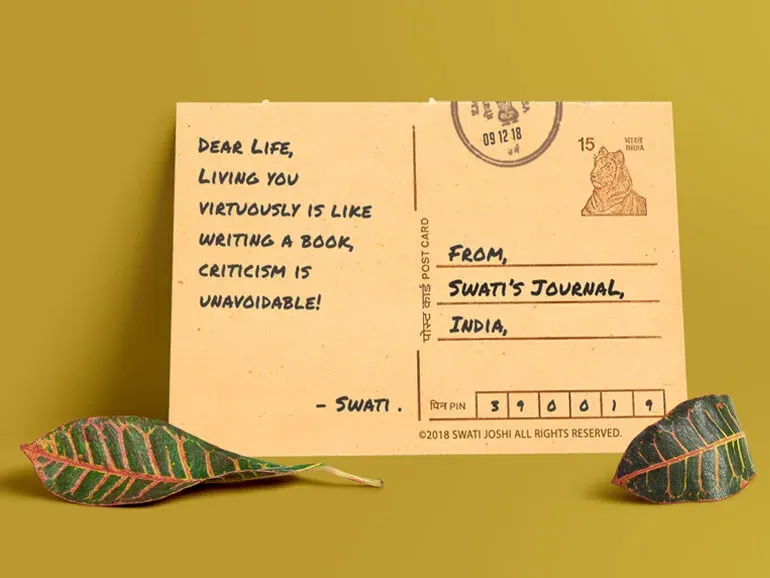 DEAR LIFE,
LIVING YOU
VIRTUOUSLY IS LIKE
WRITING A BOOK,
CRITICISM IS
UNAVOIDABLE!
- SWATI .
पोस्ट कार्ड POST CARD
09 12 18
15 भारत
INDIA
FROM,
SWATI'S JOURNAL,
INDIA,
पिन PIN 3 9 0 0 1 9
©2018 SWATI JOSHI ALL RIGHTS RESERVED.